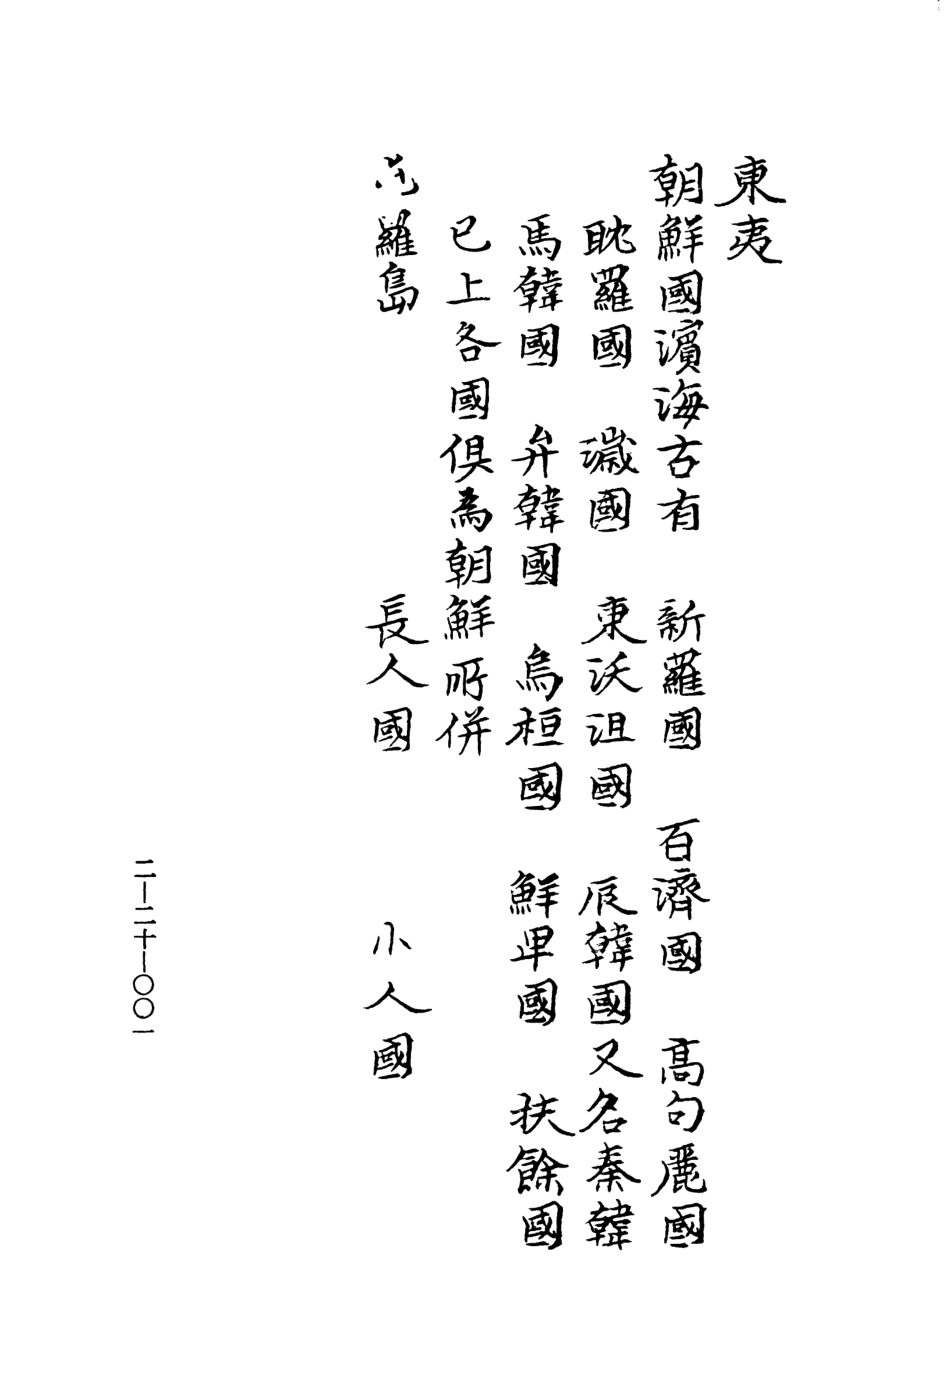 東夷
朝鮮國濱海古有 新羅國 百濟國 高句麗國
眈羅國 濊國 東沃沮國 辰韓國又名秦韓
馬韓國 弁韓國 烏桓國 鮮卑國 扶餘國
已上各國俱為朝鮮所併
羅島 長人國 小人國
二—二十—〇〇一